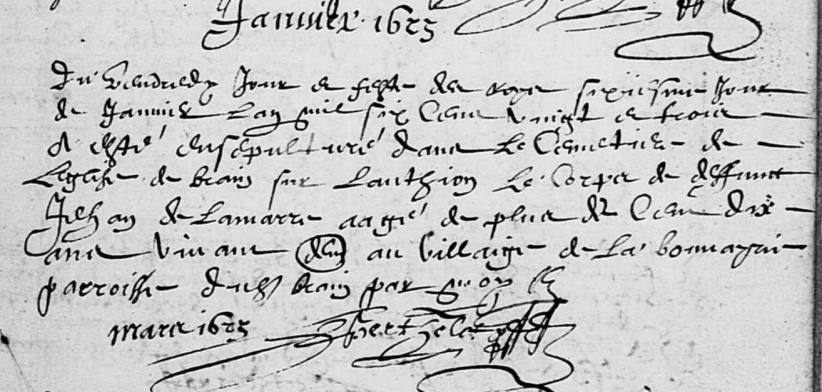 Janvier 1623
Du Vendredy Jour et feste des roys sixiesme Jour
de Janvier Lan mil six Cens vingt et trois
A esté ensepulturé dans Le Cemetiere de
Leglise de brain sur Lauthion Le Corps de deffunct
Jehan de Lamarre aagé de plus de Cens dix
ans vivant au villaige de La
parroisse dudt brain par moy
mars 1623